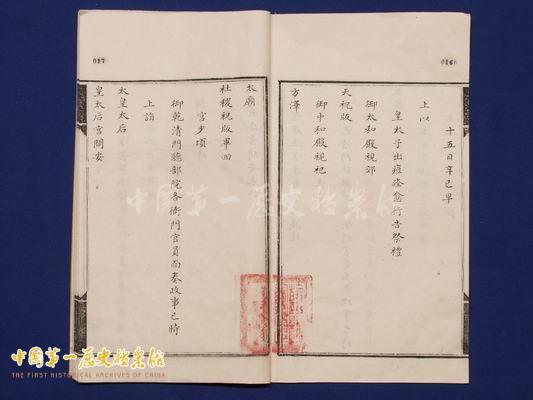 016
十五日辛巳早
上以
皇太子出痘痊愈行告祭禮
御太和殿視郊
天祝版
御中和殿視祀
方澤
017
太廟
社稷祝版畢回
宮少頃
御乾清門聽部院各衙門官員面奏政事巳時
上詣
太皇太后
皇太后宮問安
中国第一历史档案馆
中国第一历史档案馆
THE FIRST HISTORICAL ARCHIVES OF CHINA